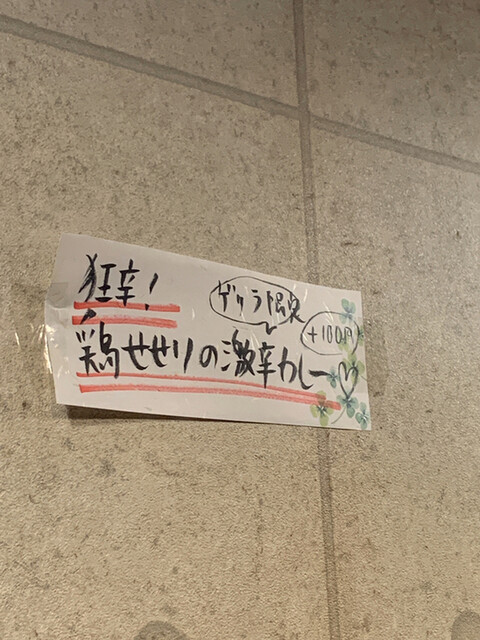 狂辛!
ゲリラ限定
+100円
鶏せせりの激辛カレー♡